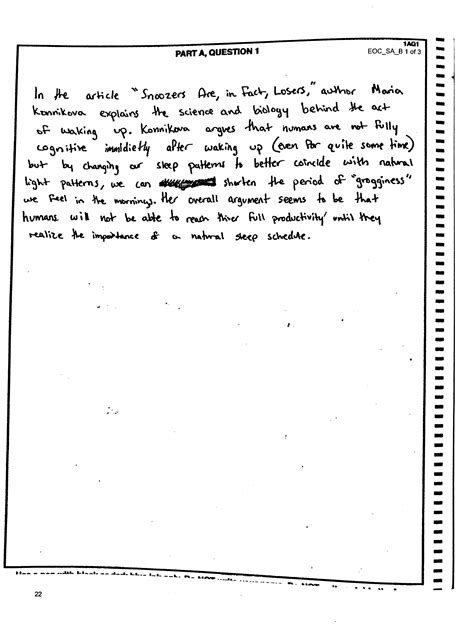 1AQ1
PART A, QUESTION 1
EOC_SA_B 1 of 3
In the article "Snoozers Are, in Fact, Losers," author Maria
Konnikova explains the science and biology behind the act
of waking up. Konnikova argues that humans are not fully
cognitive immldietly after waking up (even for quite some time)
but by changing our sleep patterns to better coincide with natural
light patterns, we can shorten the period of "grogginess"
we feel in the mornings. Her overall argument seems to be that
humans will not be able to reach thier full productivity until they
realize the importance of a natural sleep schedule.
22